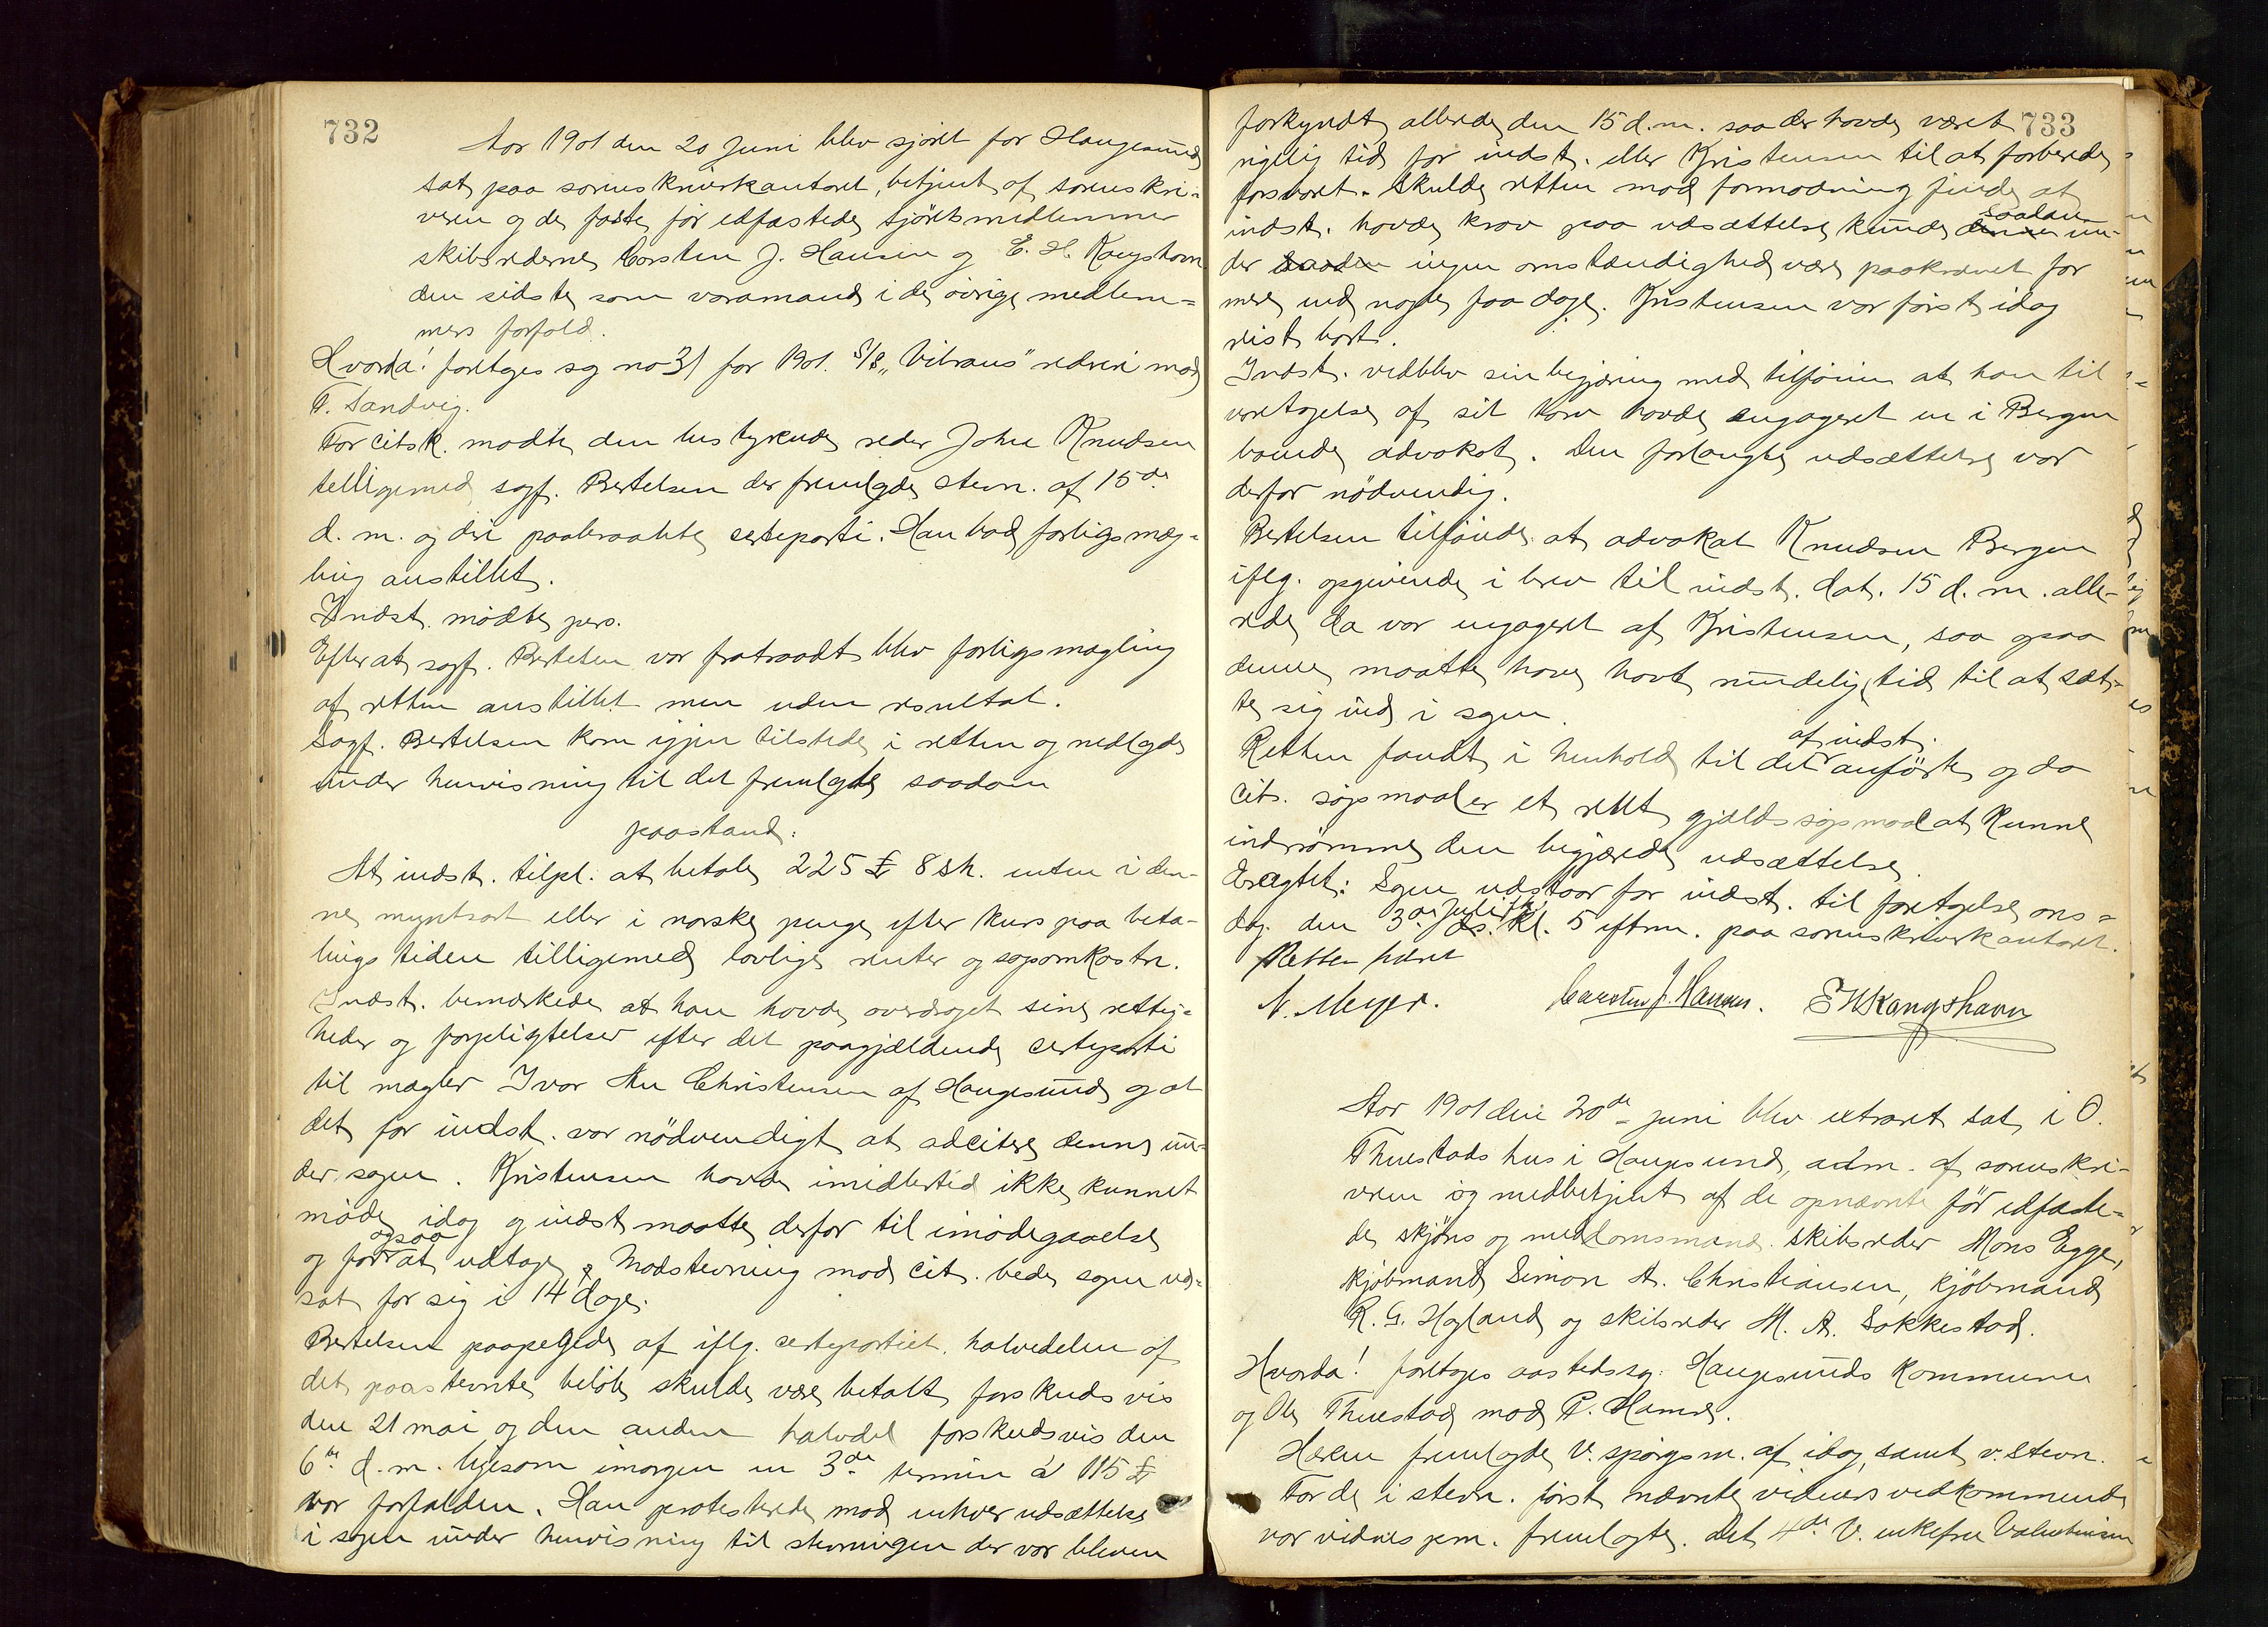 732
Aar 1901 den 20 Juni blev sjöret for Haugesund
sat paa sorenskriverkantoret, betjent af sorenskri-
veren og de faste for edfæstede sjöretsmedlemmer
skibsrederne Carsten J. Hansen og E. H. Kongshavn
den sidste som varamand i de øvrige medlem-
mers forfald.
Hvorda! foretoges sag no 31 for 1901. S/S „Vibrans" rederi mod
T. Sandvig.
For citsk. mødte den bestyrende reder John Knudsen
telligemed sagf. Bertelsen der fremlagde stevn. af 15de
d. m. og deri paaberaabte certeparti. Han bad forligsmæg-
ling anstillet.
Indst. mødte pers.
Efterat sagf. Bertelsen var fratraadt blev forligsmægling
af retten anstillet men uden resultat.
Sagf. Bertelsen kom igjen tilstede i retten og nedlagde
under henvisning til det fremlagte saadan
paastand:
At indst. tilpl. at betale 225 £ 8 sh. enten i den-
ne myntsort eller i norske penge efter kurs paa beta-
lingstiden tilligemed lovlige renter og sagsomkostn.
Indst. bemærkede at han havde overdraget sine rettig-
heder og forpligtelser efter det paagjældende certeparti
til mægler Ivar An Christensen af Haugesund og at
det for indst. var nödvendigt at adcitere denne un-
der sagen. Kristensen havde imidlertid ikke kunnet
møde idag og indst. maatte derfor til imødegaaelse
og for ogsaa at udtage Modstevning mod cit. bede sagen ud-
sat for sig i 14 dage.
Bertelsen paapegede at iflg. certepartiet halvedelen af
det paastevnte beløb skulde være betalt forskudsvis
den 21 mai og den anden halvdel forskudsvis den
6te d. m. ligesom imorgen en 3de termin á 115 £
var forfalden. Han protesterede mod enhver udsættelse
i sagen under henvisning til stevningen der var bleven
733
forkyndt allerede den 15 d. m. saa der havde været
rigelig tid for indst. eller Kristensen til at forberede
forsvaret. Skulde retten mod formodning finde at
indst. havde krav paa udsættelse kunde saadan un-
der ingen omstændighed være paakrævet for
mere end nogle faa dage. Kristensen var først idag
reist bort.
Indst. vedblev sin begjæring med tilføien at han til
varetagelse af sit tarv havde engageret en i Bergen
boende advokat. Den forlangte udsættelse var
derfor nödvendig.
Bertelsen tilføiede at advokat Knudsen Bergen
iflg. opgivende i brev til indst. dat. 15 d. m. alle-
rede da var engageret af Kristensen, saa ogsaa
denne maatte have havt rundelig tid til at sæt-
te sig ind i sagen.
Retten fandt i henhold til det af indst. anførte og da
cit. søgsmaal er et rent gjældssøgsmaal at kunne
indrømme den begjærede udsættelse.
Eragtet: Sagen udstaar for indst. til foretagelse ons-
dag den 3de Juli Kl. 5 eftm. paa sorenskriverkantoret.
Retten hævet
N. Meyer. Carsten J. Hansen. E H Kongshavn
Aar 1901 den 20de juni blev extraret sat i O.
Thuestads hus i Haugesund, adm. af sorenskri-
veren og medbetjent af de opnævnte før edfæste-
de skjøns og meddomsmænd skibsreder Mons Egge,
kjøbmand Simon A. Christiansen, kjöbmand
K. G. Hagland og skibsreder M. A. Sakkestad.
Hvorda! foretoges aastedssag: Haugesunds kommune
og Ole Thuestad mod P. Hamre.
fremlagde v. spørgsm. af idag, samt v. stevn.
For de i stevn. først nævnte vidners vedkommende
var vidnespm. fremlagte. Det 4de V. enkefru Valentinsen